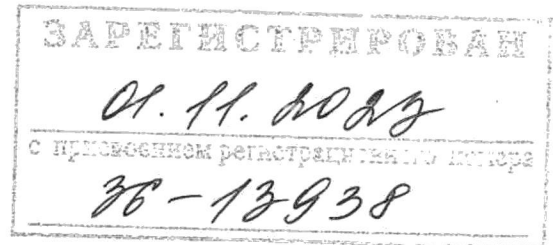 ЗАРЕГИСТРИРОВАН
01.11.2023
с присвоением регистрационного номера
36-13938